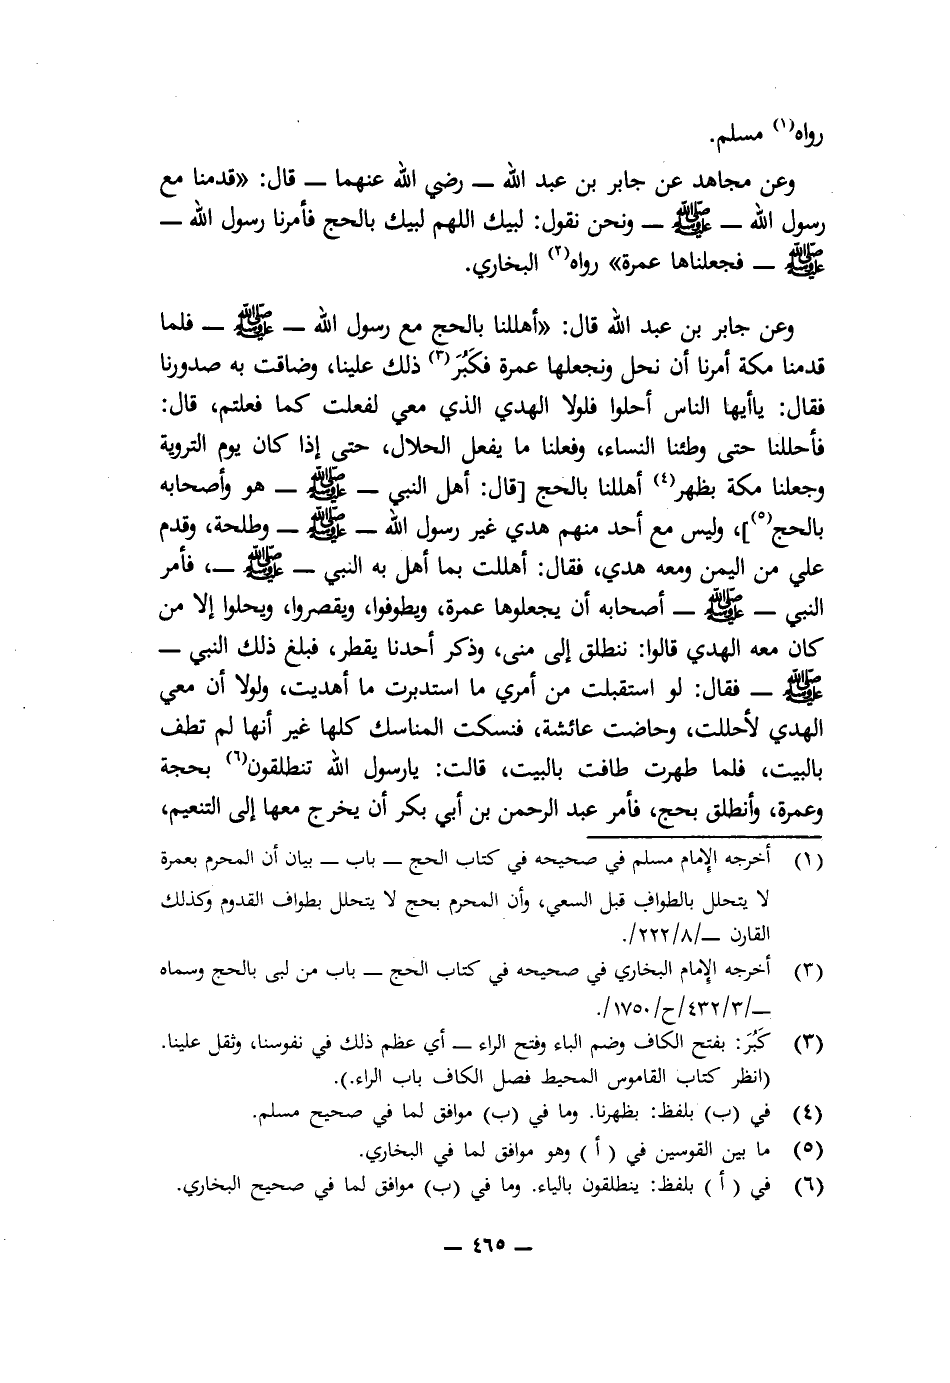 رواه(١) مسلم.
وعن مجاهد عن جابر بن عبد الله — رضي الله عنهما — قال: «قدمنا مع
رسول الله — ﷺ — ونحن نقول: لبيك اللهم لبيك بالحج فأمرنا رسول الله —
ﷺ — فجعلناها عمرة» رواه(٢) البخاري.
وعن جابر بن عبد الله قال: «أهللنا بالحج مع رسول الله — ﷺ — فلما
قدمنا مكة أمرنا أن نحل ونجعلها عمرة فكَبُرَ(٣) ذلك علينا، وضاقت به صدورنا
فقال: ياأيها الناس أحلوا فلولا الهدي الذي معي لفعلت كما فعلتم، قال:
فأحللنا حتى وطئنا النساء، وفعلنا ما يفعل الحلال، حتى إذا كان يوم التروية
وجعلنا مكة بظهر(٤) أهللنا بالحج [قال: أهل النبي — ﷺ — هو وأصحابه
بالحج(٥)]، وليس مع أحد منهم هدي غير رسول الله — ﷺ — وطلحة، وقدم
علي من اليمن ومعه هدي، فقال: أهللت بما أهل به النبي — ﷺ —، فأمر
النبي — ﷺ — أصحابه أن يجعلوها عمرة، ويطوفوا، ويقصروا، ويحلوا إلا من
كان معه الهدي قالوا: ننطلق إلى منى، وذكر أحدنا يقطر، فبلغ ذلك النبي —
ﷺ — فقال: لو استقبلت من أمري ما استدبرت ما أهديت، ولولا أن معي
الهدي لأحللت، وحاضت عائشة، فنسكت المناسك كلها غير أنها لم تطف
بالبيت، فلما طهرت طافت بالبيت، قالت: يارسول الله تنطلقون(٦) بحجة
وعمرة، وأنطلق بحج، فأمر عبد الرحمن بن أبي بكر أن يخرج معها إلى التنعيم،
(١) أخرجه الإمام مسلم في صحيحه في كتاب الحج — باب — بيان أن المحرم بعمرة
لا يتحلل بالطواف قبل السعي، وأن المحرم بحج لا يتحلل بطواف القدوم وكذلك
القارن —/٢٢٢/٨/.
(٣) أخرجه الإمام البخاري في صحيحه في كتاب الحج — باب من لبى بالحج وسماه
—/٤٣٢/٣/ح/١٧٥٠/.
(٣) كَبُرَ: بفتح الكاف وضم الباء وفتح الراء — أي عظم ذلك في نفوسنا، وثقل علينا.
(انظر كتاب القاموس المحيط فصل الكاف باب الراء.).
(٤) في (ب) بلفظ: بظهرنا. وما في (ب) موافق لما في صحيح مسلم.
(٥) ما بين القوسين في ( أ ) وهو موافق لما في البخاري.
(٦) في ( أ ) بلفظ: ينطلقون بالياء. وما في (ب) موافق لما في صحيح البخاري.
— ٤٦٥ —